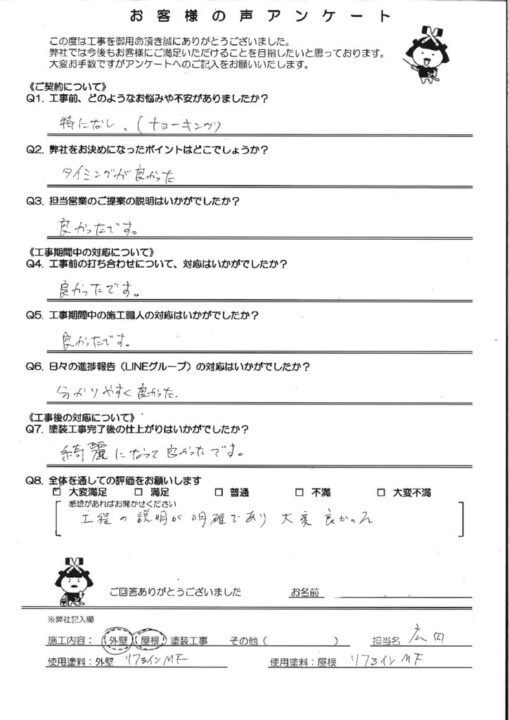 お客様の声アンケート
この度は工事を御用命頂き誠にありがとうございました。
弊社では今後もお客様にご満足いただけることを目指したいと思っております。
大変お手数ですがアンケートへのご記入をお願いいたします。
《ご契約について》
Q1. 工事前、どのようなお悩みや不安がありましたか?
特になし、(チョーキング)
Q2. 弊社をお決めになったポイントはどこでしょうか?
タイミングが良かった
Q3. 担当営業のご提案の説明はいかがでしたか?
良かったです。
《工事期間中の対応について》
Q4. 工事前の打ち合わせについて、対応はいかがでしたか?
良かったです。
Q5. 工事期間中の施工職人の対応はいかがでしたか?
良かったです。
Q6. 日々の進捗報告(LINEグループ)の対応はいかがでしたか?
分かりやすく良かった.
《工事後の対応について》
Q7. 塗装工事完了後の仕上がりはいかがでしたか?
綺麗になって良かったです。
Q8. 全体を通しての評価をお願いします
☐ 大変満足 ☐ 満足 ☐ 普通 ☐ 不満 ☐ 大変不満
感想があればお聞かせください
工程の説明が明確であり 大変良かった
ご回答ありがとうございました お名前
※弊社記入欄
施工内容:(外壁)(屋根)塗装工事 その他( ) 担当名 広田
使用塗料:外壁 リファインMF 使用塗料:屋根 リファインMF